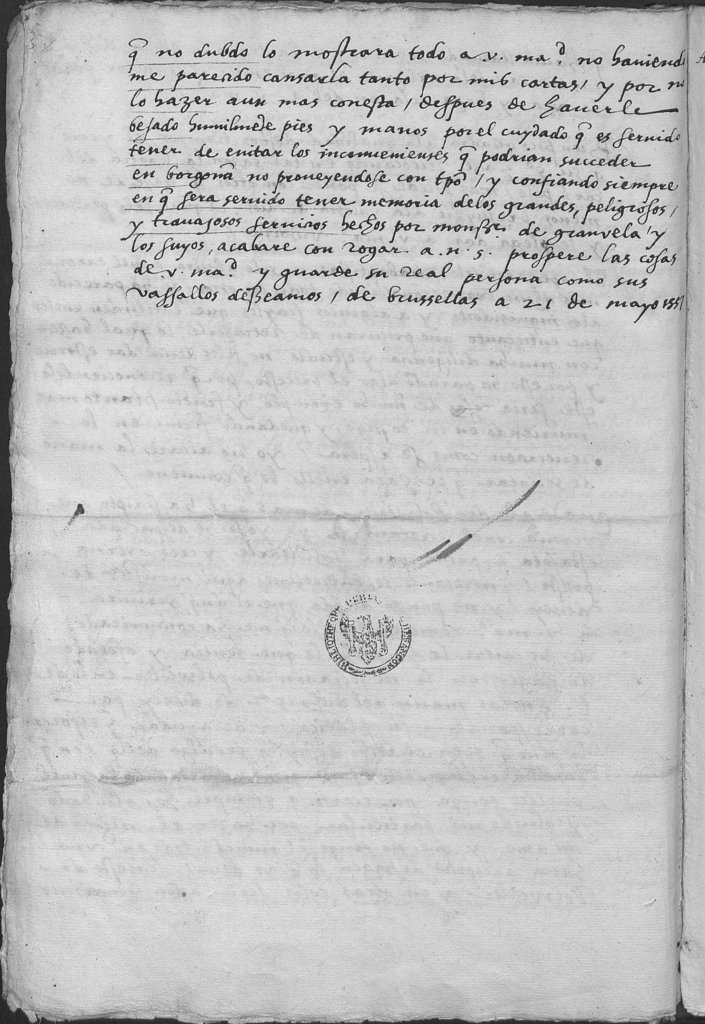 q̃ no dubdo lo mostrara todo a v. ma.d no haviendo
me parecido cansarla tanto por mis cartas / y por no
lo hazer aun mas conesta / despues de haverle
besado humilmẽte pies y manos por el cuydado q̃ es servido
tener de evitar los inconvenientes q̃ podrian succeder
en borgoña no proveyendose con tpõ / y confiando siempre
en q̃ sera servido tener memoria delos grandes, peligrosos /
y travajosos servicios hechos por monsr de granvela / y
los suyos, acabare con rogar a .n. s. prospere las cosas
de v. ma.d y guarde su real persona como sus
vassallos desseamos / de brussellas a 21 de mayo 155
BIBLIOTHEQUE PUBLI BESANCON